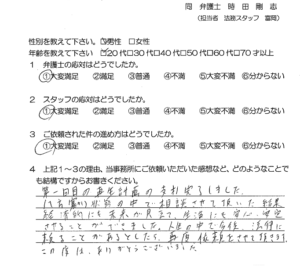 同 弁護士 時 田 剛 志
(担当者 法務スタッフ 冨岡)
性別を教えて下さい。☑男性 □女性
年齢を教えて下さい □20代□30代□40代□50代□60代□70才以上
1 弁護士の応対はどうでしたか。
①大変満足 ②満足 ③普通 ④不満 ⑤大変不満 ⑥分からない
2 スタッフの応対はどうでしたか。
①大変満足 ②満足 ③普通 ④不満 ⑤大変不満 ⑥分からない
3 ご依頼された件の進め方はどうでしたか。
①大変満足 ②満足 ③普通 ④不満 ⑤大変不満 ⑥分からない
4 上記1~3の理由、当事務所にご依頼いただいた感想など、どのようなことで
も結構ですからお書きください。
第一回目の再生計画の支払完了しました。
の中で相談させて頂いた結果
経済的にも未来が見え、生活にも安心・安定
させることができました。人生の中で今後、法律に
頼ることがあるとしたら、再度依頼をさせて頂きます。
この度は、ありがとうございました